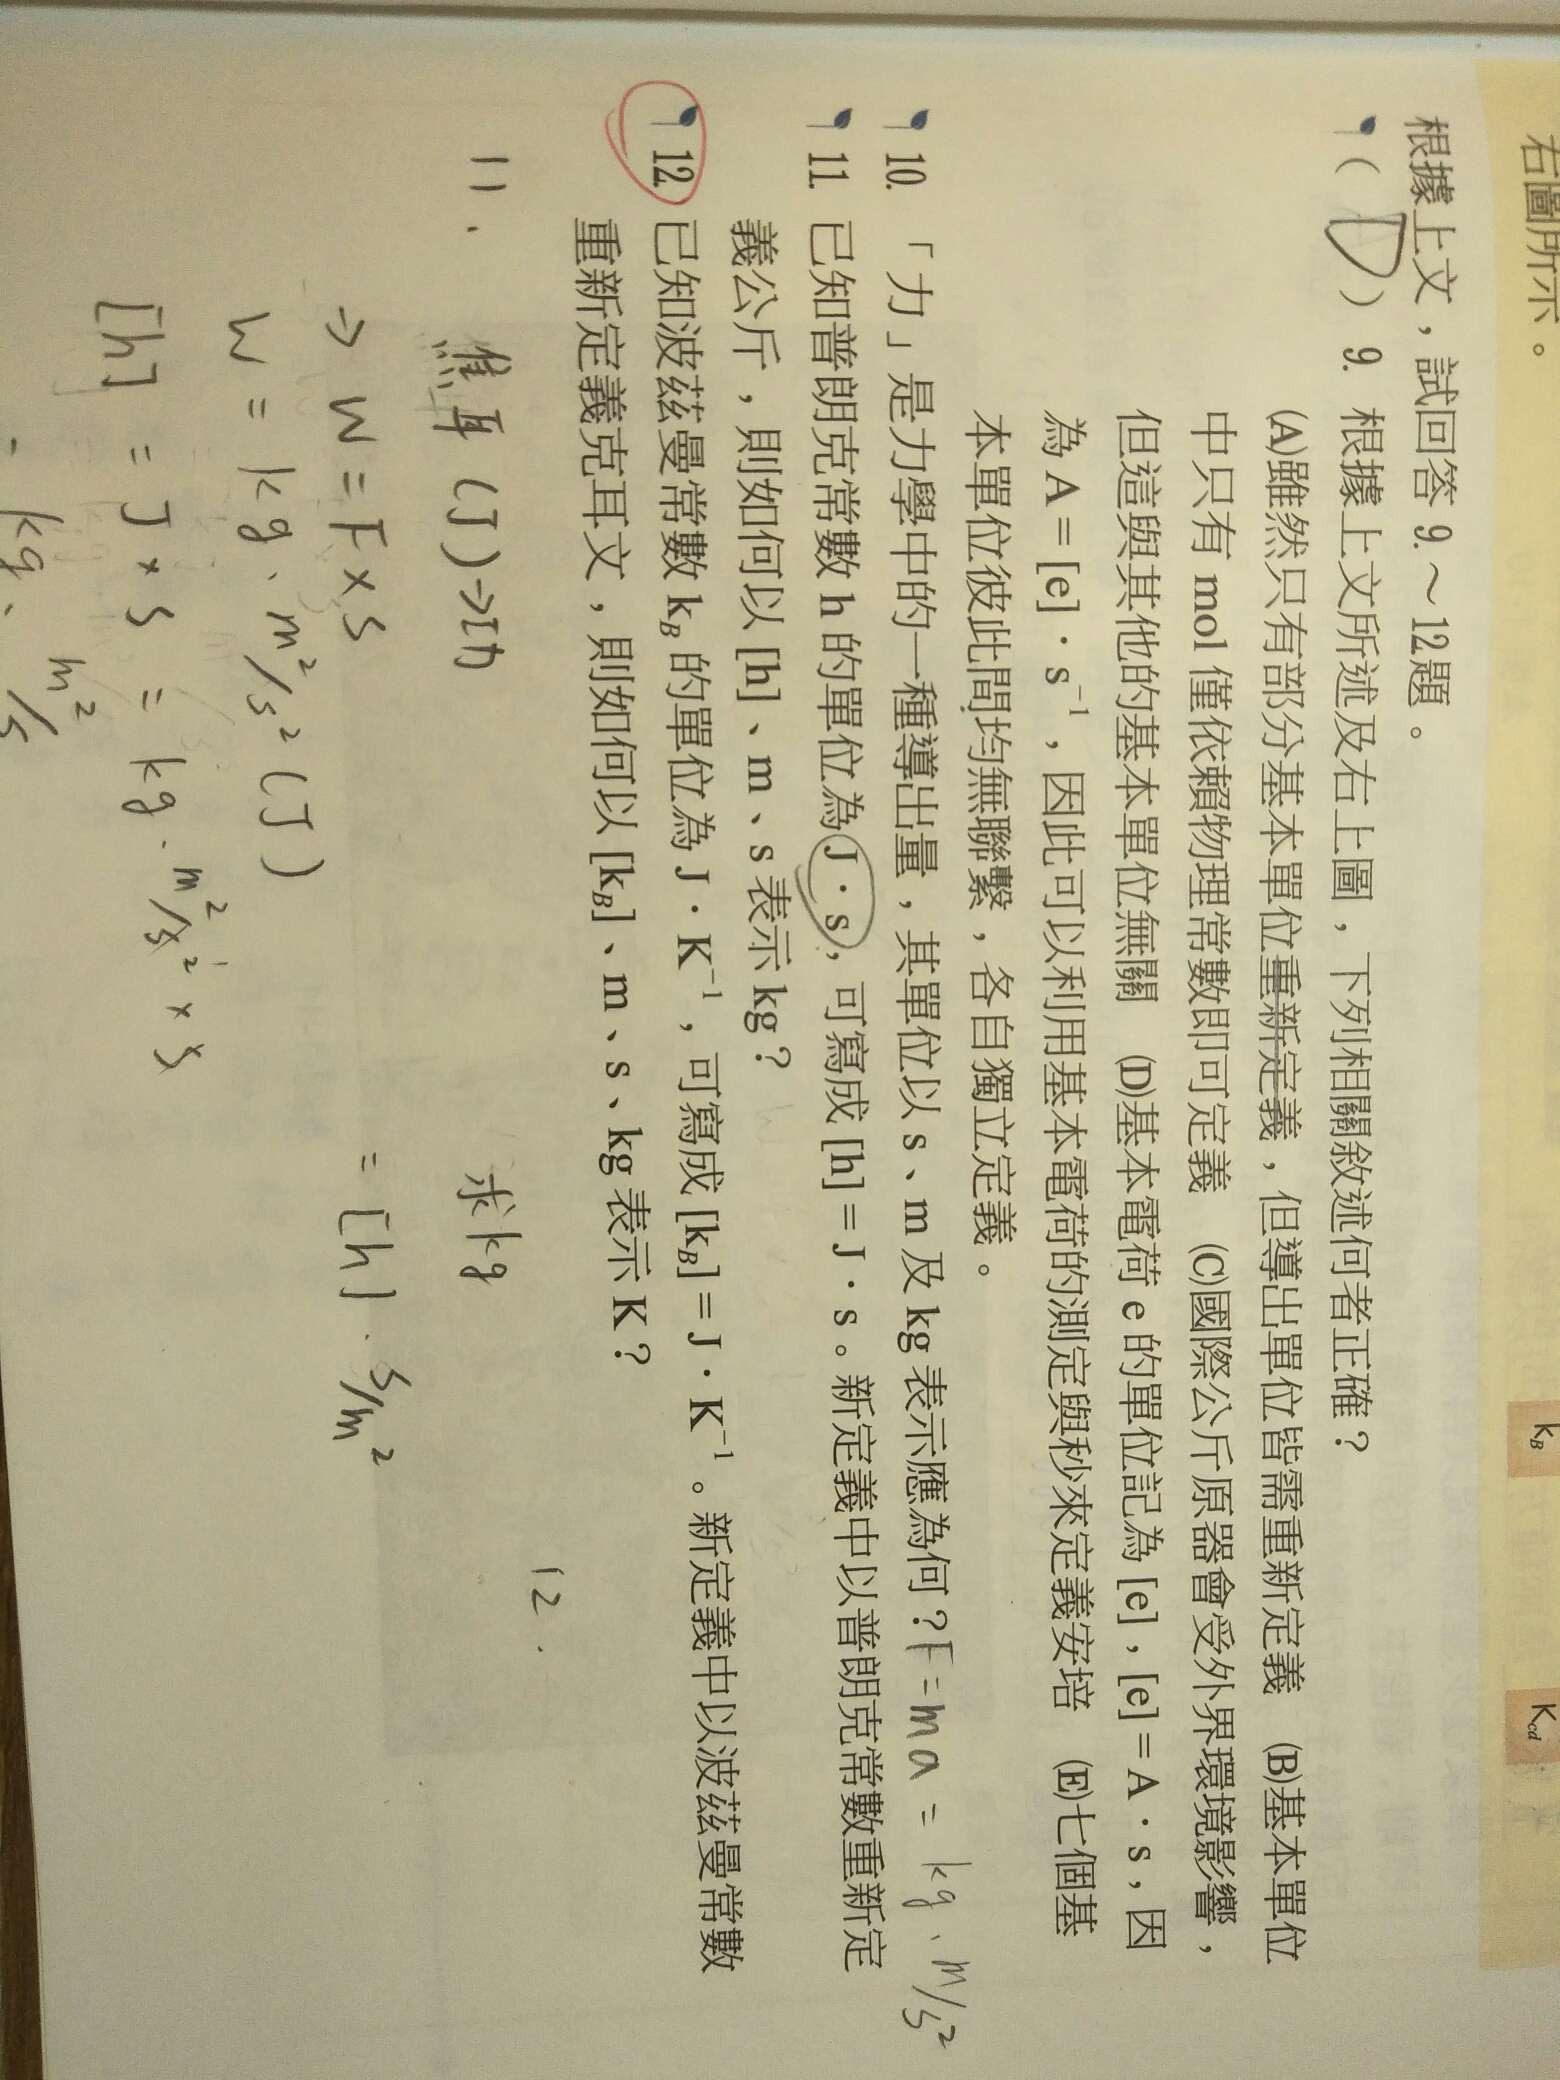 右圖所示。
k_B
K_cd
根據上文，試回答 9.～12.題。
( D ) 9. 根據上文所述及右上圖，下列相關敘述何者正確？
(A)雖然只有部分基本單位重新定義，但導出單位皆需重新定義　(B)基本單位
中只有 mol 僅依賴物理常數即可定義　(C)國際公斤原器會受外界環境影響，
但這與其他的基本單位無關　(D)基本電荷 e 的單位記為 [e]，[e] = A · s，因
為 A = [e] · s⁻¹，因此可以利用基本電荷的測定與秒來定義安培　(E)七個基
本單位彼此間均無聯繫，各自獨立定義。
10. 「力」是力學中的一種導出量，其單位以 s、m 及 kg 表示應為何？F = ma = kg · m/s²
11. 已知普朗克常數 h 的單位為 J · s，可寫成 [h] = J · s。新定義中以普朗克常數重新定
義公斤，則如何以 [h]、m、s 表示 kg？
12. 已知波茲曼常數 k_B 的單位為 J · K⁻¹，可寫成 [k_B] = J · K⁻¹。新定義中以波茲曼常數
重新定義克耳文，則如何以 [k_B]、m、s、kg 表示 K？
11.
焦耳 (J) → 功
⇒ W = F × S
W = kg · m²/s² (J)
[h] = J × s = kg · m²/s² × s
kg · m²/s
求 kg
= [h] · s/m²
12.